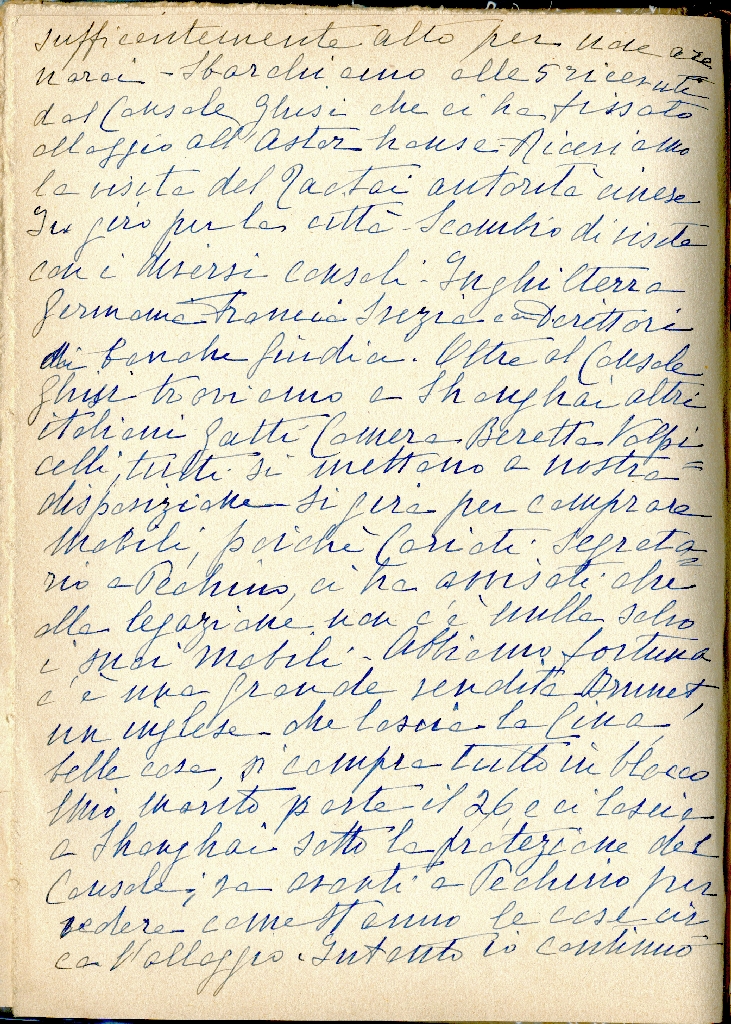 sufficentemente alto per non are
narci - Sbarchiamo alle 5 ricevuti
dal Console Ghisi che ci ha fissato
alloggio all'Astor house - Riceviamo
la visita del Taotai autorità cinese
In giro per la città - Scambio di visite
con i diversi consoli - Inghilterra
Germania Francia Svezia e a Direttori
di banche Giudici. Oltre al Console
Ghisi troviamo a Shanghai altri
italiani Gatti Camera Beretta Volpi
celli, tutti si mettono a nostra
disposizione - Si gira per comprare
mobili, poichè Cariati Segreta=
rio a Pechino, ci ha avvisati che
alla legazione non c'è nulla salvo
i suoi mobili - Abbiamo fortuna
c'è una grande vendita Brunet,
un inglese - che lascia la Cina,
belle cose, si compra tutto in blocco
Mio marito parte il 26, e ci lascia
a Shanghai sotto la protezione del
Console; va avanti a Pechino per
vedere come stanno le cose cir
ca l'alloggio. Intanto io continuo